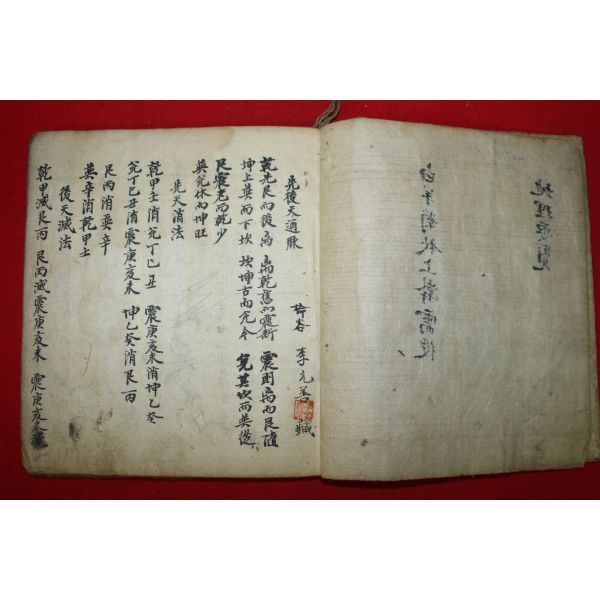 地理要覽
谷 李元善 藏
先後天通脉
乾先艮而後离 离乾舊而震新 震則离而艮隨
坤上巽而下坎 坎坤古而兌今 兌其坎而巽從
艮震老而乾少
巽兌休而坤旺
先天消法
乾甲壬消兌丁巳丑 震庚亥未消坤乙癸
兌丁巳丑消震庚亥未 坤乙癸消艮丙
艮丙消巽辛
巽辛消乾甲壬
後天滅法
乾甲滅艮丙 艮丙滅震庚亥未 震庚亥未